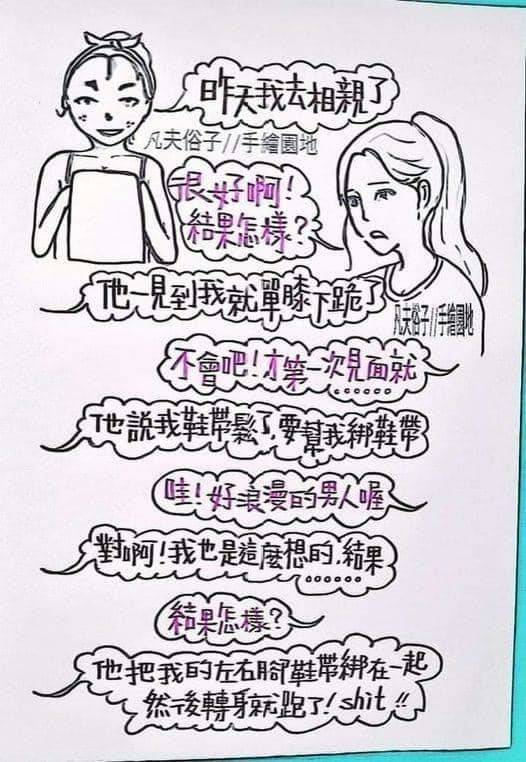 昨天我去相親了
凡夫俗子//手繪園地
很好啊!
結果怎樣?
他一見到我就單膝下跪了
凡夫俗子//手繪園地
不會吧!才第一次見面就
......
他說我鞋帶鬆了,要幫我綁鞋帶
哇!好浪漫的男人喔
對啊!我也是這麼想的,結果
......
結果怎樣?
他把我的左右腳鞋帶綁在一起
然後轉身就跑了!shit!!